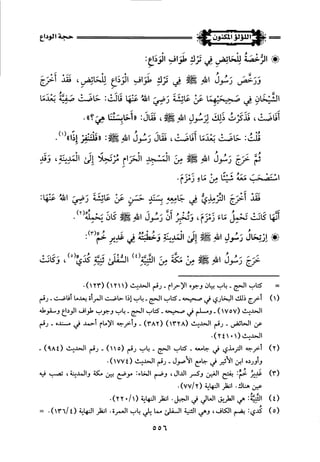 اللؤلؤ المكنون
حجة الوداع
الرُّخْصَةُ لِلْحَائِضِ فِي تَرْكِ طَوَافِ الْوَدَاعِ:
وَرَخَّصَ رَسُولُ اللهِ ﷺ فِي تَرْكِ طَوَافِ الْوَدَاعِ لِلْحَائِضِ، فَقَدْ أَخْرَجَ
الشَّيْخَانِ فِي صَحِيحَيْهِمَا عَنْ عَائِشَةَ رَضِيَ اللهُ عَنْهَا قَالَتْ: حَاضَتْ صَفِيَّةُ بَعْدَمَا
أَفَاضَتْ، فَذَكَرْتُ ذَلِكَ لِرَسُولِ اللهِ ﷺ، فَقَالَ: «أَحَابِسَتُنَا هِيَ؟».
قُلْتُ: حَاضَتْ بَعْدَمَا أَفَاضَتْ، فَقَالَ رَسُولُ اللهِ ﷺ: «فَلْتَنْفِرْ إِذًا»(١).
ثُمَّ خَرَجَ رَسُولُ اللهِ ﷺ مِنَ الْمَسْجِدِ الْحَرَامِ مُرْتَحِلًا إِلَى الْمَدِينَةِ، وَقَدِ
اسْتَصْحَبَ مَعَهُ شَيْئًا مِنْ مَاءِ زَمْزَمَ.
فَقَدْ أَخْرَجَ التِّرْمِذِيُّ فِي جَامِعِهِ بِسَنَدٍ حَسَنٍ عَنْ عَائِشَةَ رَضِيَ اللهُ عَنْهَا:
أَنَّهَا كَانَتْ تَحْمِلُ مَاءَ زَمْزَمَ، وَتُخْبِرُ أَنَّ رَسُولَ اللهِ ﷺ كَانَ يَحْمِلُهُ(٢).
ارْتِحَالُ رَسُولِ اللهِ ﷺ إِلَى الْمَدِينَةِ وَخُطْبَتُهُ فِي غَدِيرِ خُمٍّ(٣):
خَرَجَ رَسُولُ اللهِ ﷺ مِنْ مَكَّةَ مِنَ الثَّنِيَّةِ(٤) السُّفْلَى ثَنِيَّةِ كُدَيٍّ(٥)، وَكَانَتْ
= كتاب الحج ـ باب بيان وجوه الإحرام ـ رقم الحديث (١٢١١) (١٢٣).
(١) أخرج ذلك البخاري في صحيحه ـ كتاب الحج ـ باب إذا حاضت المرأة بعدما أفاضت ـ رقم
الحديث (١٧٥٧) ـ ومسلم في صحيحه ـ كتاب الحج ـ باب وجوب طواف الوداع وسقوطه
عن الحائض ـ رقم الحديث (١٣٢٨) (٣٨٢) ـ وأخرجه الإمام أحمد في مسنده ـ رقم
الحديث (٢٤١٠١).
(٢) أخرجه الترمذي في جامعه ـ كتاب الحج ـ باب (١١٥) ـ رقم الحديث (٩٨٤) ـ
وأورده ابن الأثير في جامع الأصول ـ رقم الحديث (١٧٧٤).
(٣) غَدِيرُ خُمٍّ: بفتح الغين وكسر الدال، وضم الخاء: موضع بين مكة والمدينة، تصب فيه
عين هناك. انظر النهاية (٧٧/٢).
(٤) الثَّنِيَّةُ: هي الطريق العالي في الجبل. انظر النهاية (٢٢٠/١).
(٥) كُدَيٌّ: بضم الكاف، وهي الثنية السفلى مما يلي باب العمرة. انظر النهاية (١٣٦/٤). =
٥٥٦